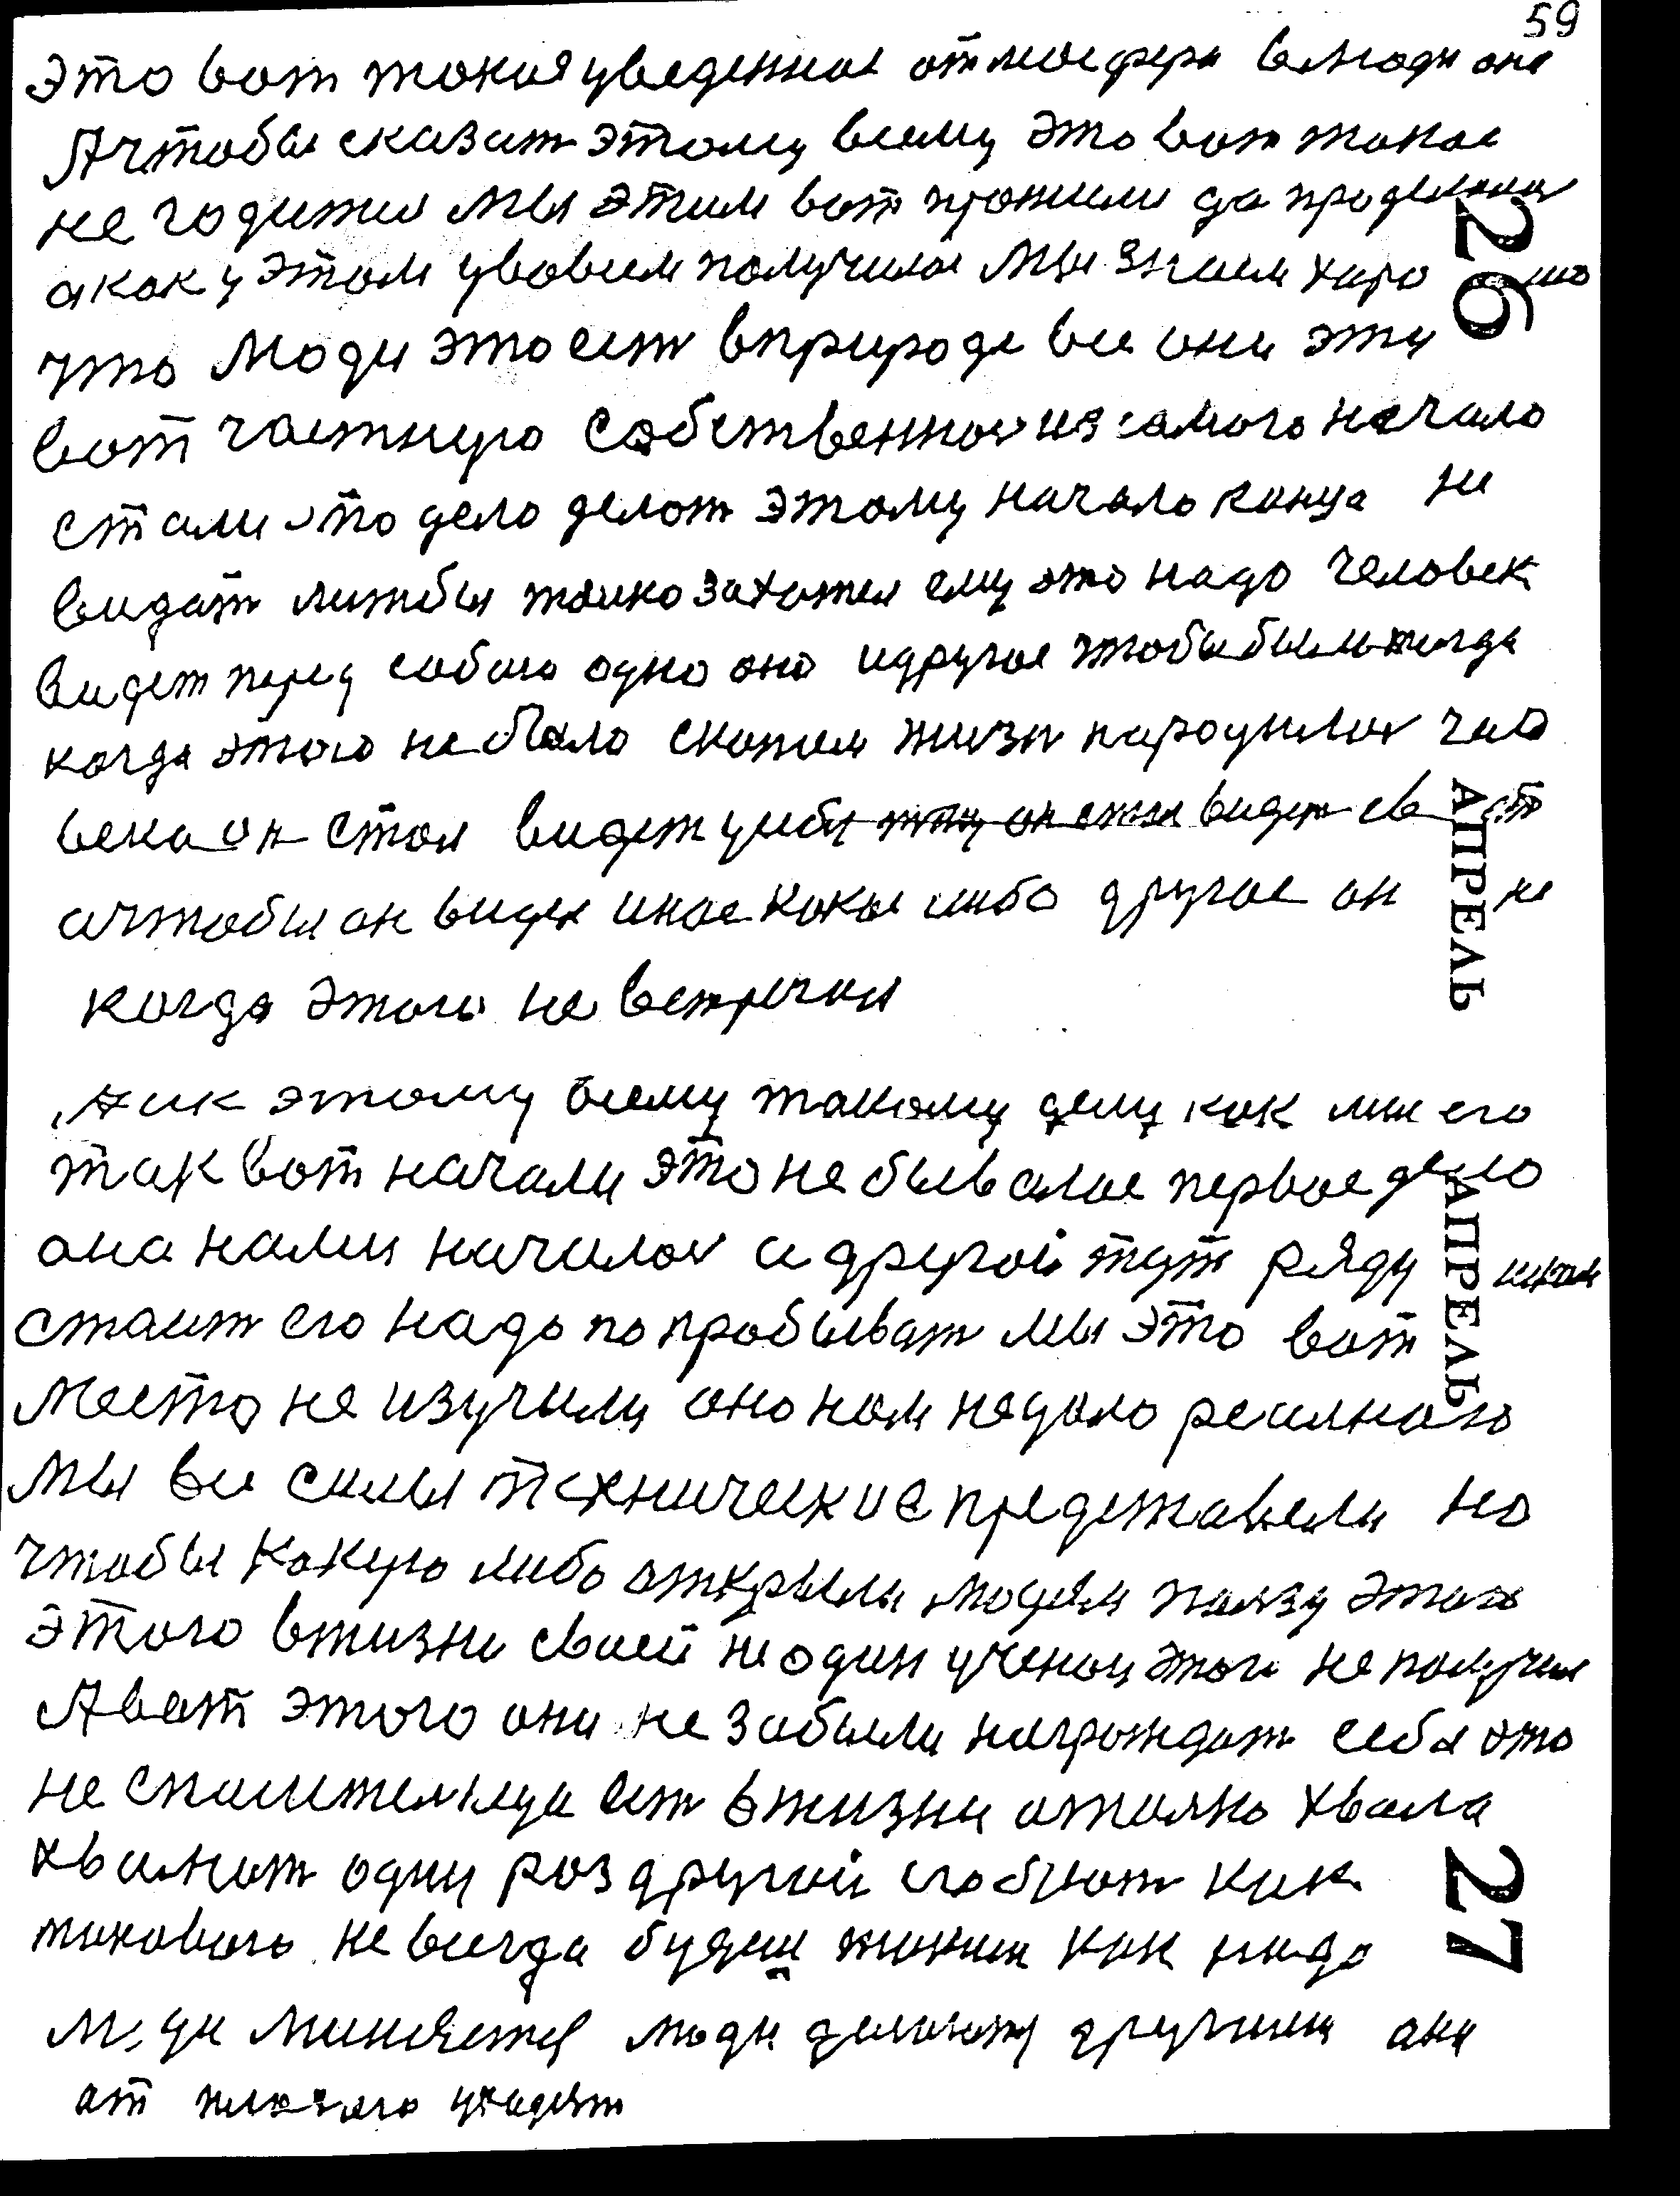 59
это вот такая уведенное атмосфера влюди оне
Ачтобы сказат этому всему это вот такое
не годится мы этим вот прожили да проделали
акак у этом условием получилос мы знаем харо шо
что люди это ест вприроде все они эту
вот частную собственност из самого начало
стали это дело делат этому начало конца не
видат лиж бы толко захотел ему это надо человек
видет перед собою одно оно идругое чтобы было тогда
когда этого не было скажем жизн народилас чало
века он стал видет у себя
ачтобы он видел иное какое либо другое он не
когда этого не встречал
Аик этому всему такому делу как мы его
так вот начали это не бывалое первое дело
она нами началос а другой тут ряду
стаит его надо попробыват мы это вот
место не изучили оно нам недало реалного
мы все силы технические представели но
чтобы какую либо открыли людям ползу этого
этого вжизни своей не один ученой этого не получил
Авот этого они не забыли награждат себя это
не спасителница ест вжизни атолко хвала
хвалют один раз другой его бют как
таковаго не всегда будиш таким как надо
люди миняетя люди делаютя другими ани
ат плохого уходят
26
АПРЕЛЬ
АПРЕЛЬ
27